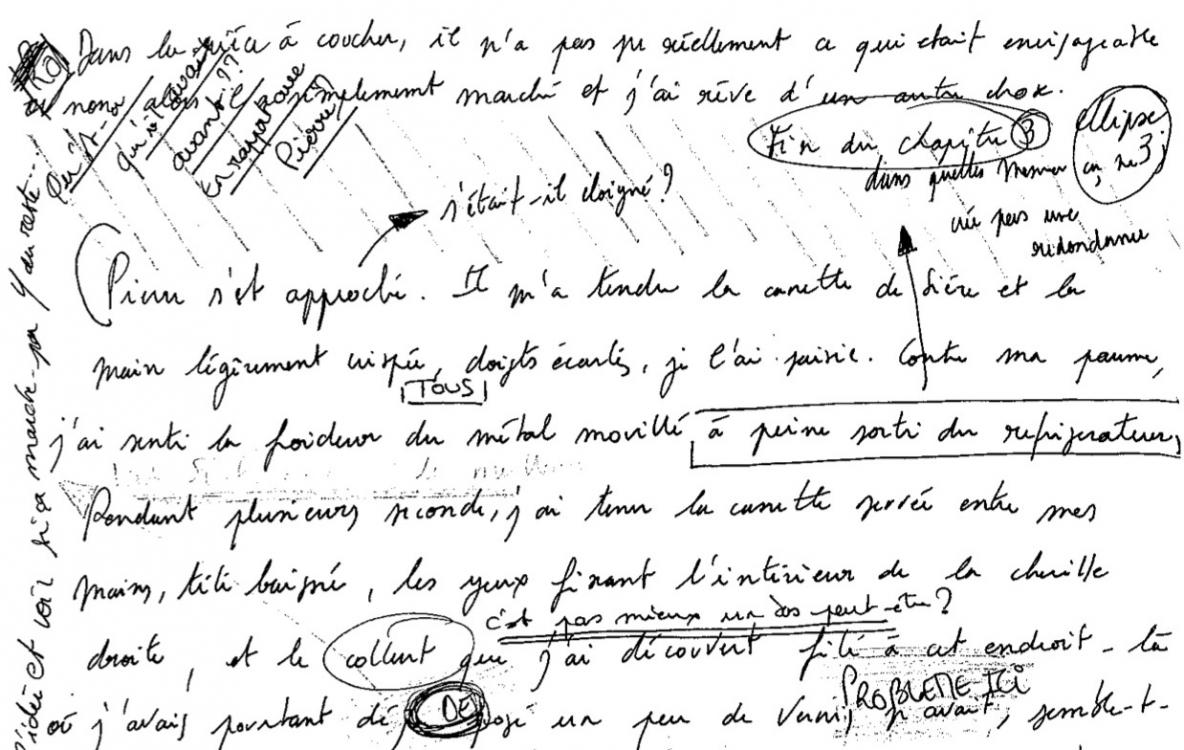 Dans la pièce à coucher, il n'a pas pu réellement ce qui était envisageable
simplement marché et j'ai rêvé d'un autre chose.
Peut-
qu'
avant ??
en rapport avec
Pierre
Fin du chapitre 3
ellipse
3
dans quelles mesures
crée pas une
redondance
s'était-il éloigné ?
Pierre s'est approché. Il m'a tendu la canette de bière et la
main légèrement crispée, doigts écartés, je l'ai saisie. Contre ma paume,
TOUS
j'ai senti la froideur du métal mouillé à peine sorti du réfrigérateur,
Pendant plusieurs seconde, j'ai tenu la canette serrée entre mes
mains, tête baissée, les yeux fixant l'intérieur de la cheville
c'est pas mieux un dos peut-être ?
droite, et le collant que j'ai découvert filé à cet endroit-là
PROBLEME ICI
où j'avais pourtant déposé un peu de vernis, avant, semble-t-
DÉ
l'idée et voir si ça marche par du reste...